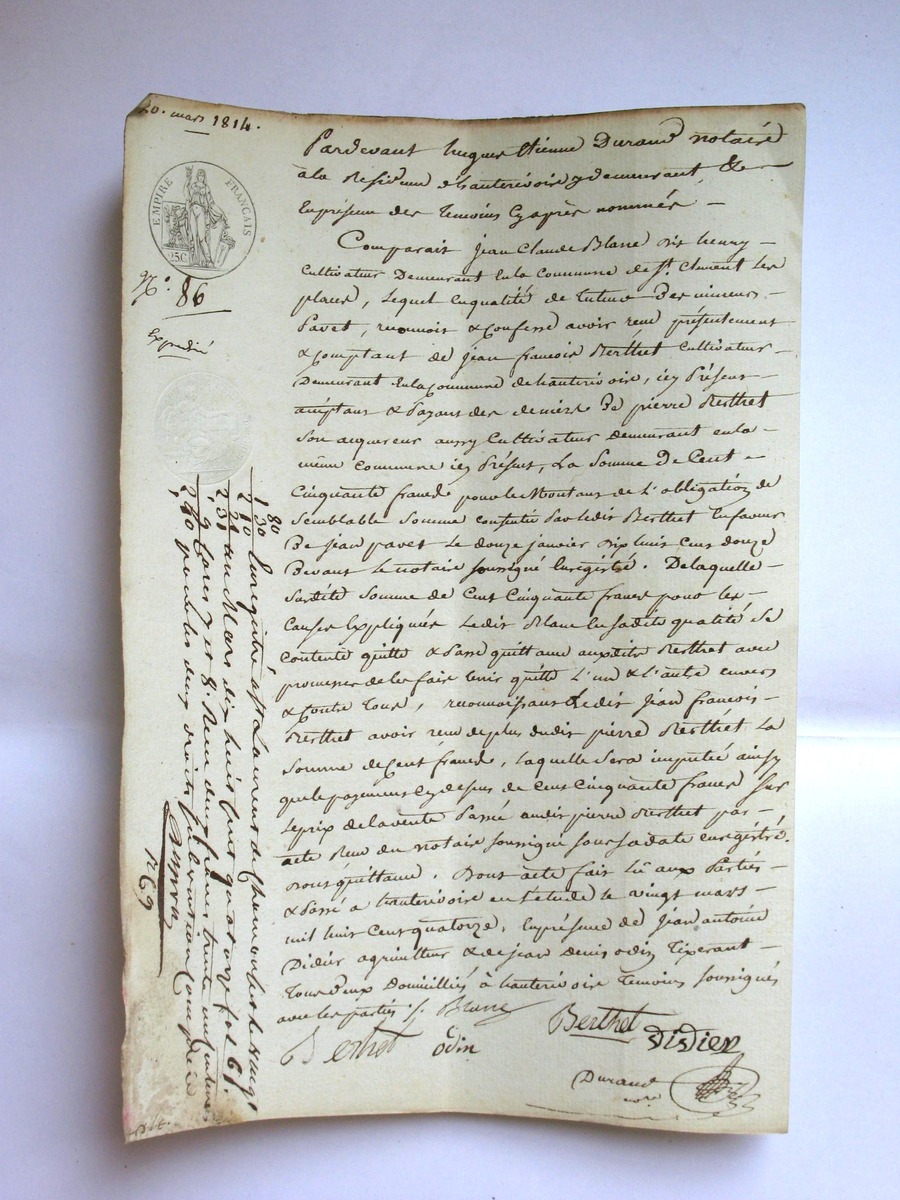 20. mars 1814.
EMPIRE FRANÇAIS
25C
N.º 86
Expedié
Pardevant hugues Etienne Durand notaire
a la Residence d'hauterivoire y demeurant &
En présence des temoins Cy après nommés –
Comparait jean Claude Blanc dit henry –
Cultivateur Demeurant En la Commune de St. Clement Les
places, Lequel En qualité de tuteur Des mineurs –
Pavet, reconnoit & Confesse avoir reçu présentement
& Comptant de jean françois Berthet Cultivateur –
Demeurant En la Commune de hauterivoire, icy Présent
acceptant & Payant des deniers De pierre Berthet
Son acquereur aussy Cultivateur demeurant en la –
même Commune icy Présent, La Somme De Cent –
Cinquante francs pour le Montant de L'obligation de
Semblable Somme Consentie Par ledit Berthet En faveur
De jean pavet Le douze janvier dix huit Cent douze
Devant Le notaire soussigné Enregistré. De laquelle –
Susdite Somme de Cent Cinquante francs pour les –
Causes Expliquées Ledit Blanc En sadite qualité Se
Contente quitte & Passe quittance auxdits Berthet avec
promesse de les faire tenir quitte L'un & L'autre envers
& Contre tous, reconnoissant Ledit jean françois –
Berthet avoir reçu de plus dudit pierre Berthet La
Somme de Cent francs, Laquelle Sera imputée ainsy
que le payement Cy dessus de Cent Cinquante francs Sur
Le prix de la vente Passée audit pierre Berthet par –
acte Reçu du notaire soussigné sous sa date enregistré.
Dont quittance. Dont acte fait Lû aux Parties –
& Passé a hauterivoire en l'etude le vingt mars –
mil huit Cent quatorze, En présence de jean antoine
Didier agriculteur & de jean denis odin tixerant –
tous deux domiciliés à hauterivoire temoins soussignés
avec les parties /. Blanc
Berthet
Berthet
odin
Didier
Durand
nore
1 80
1 30
2 10
2 31
9
2 40
Enregistré à St Laurent de Chamousset le vingt
un Mars dix huit cent quatorze fol 61.
Cases 7 et 8. Reçu deux francs trente un centimes
pour les deux droits subvention Comprise
1769